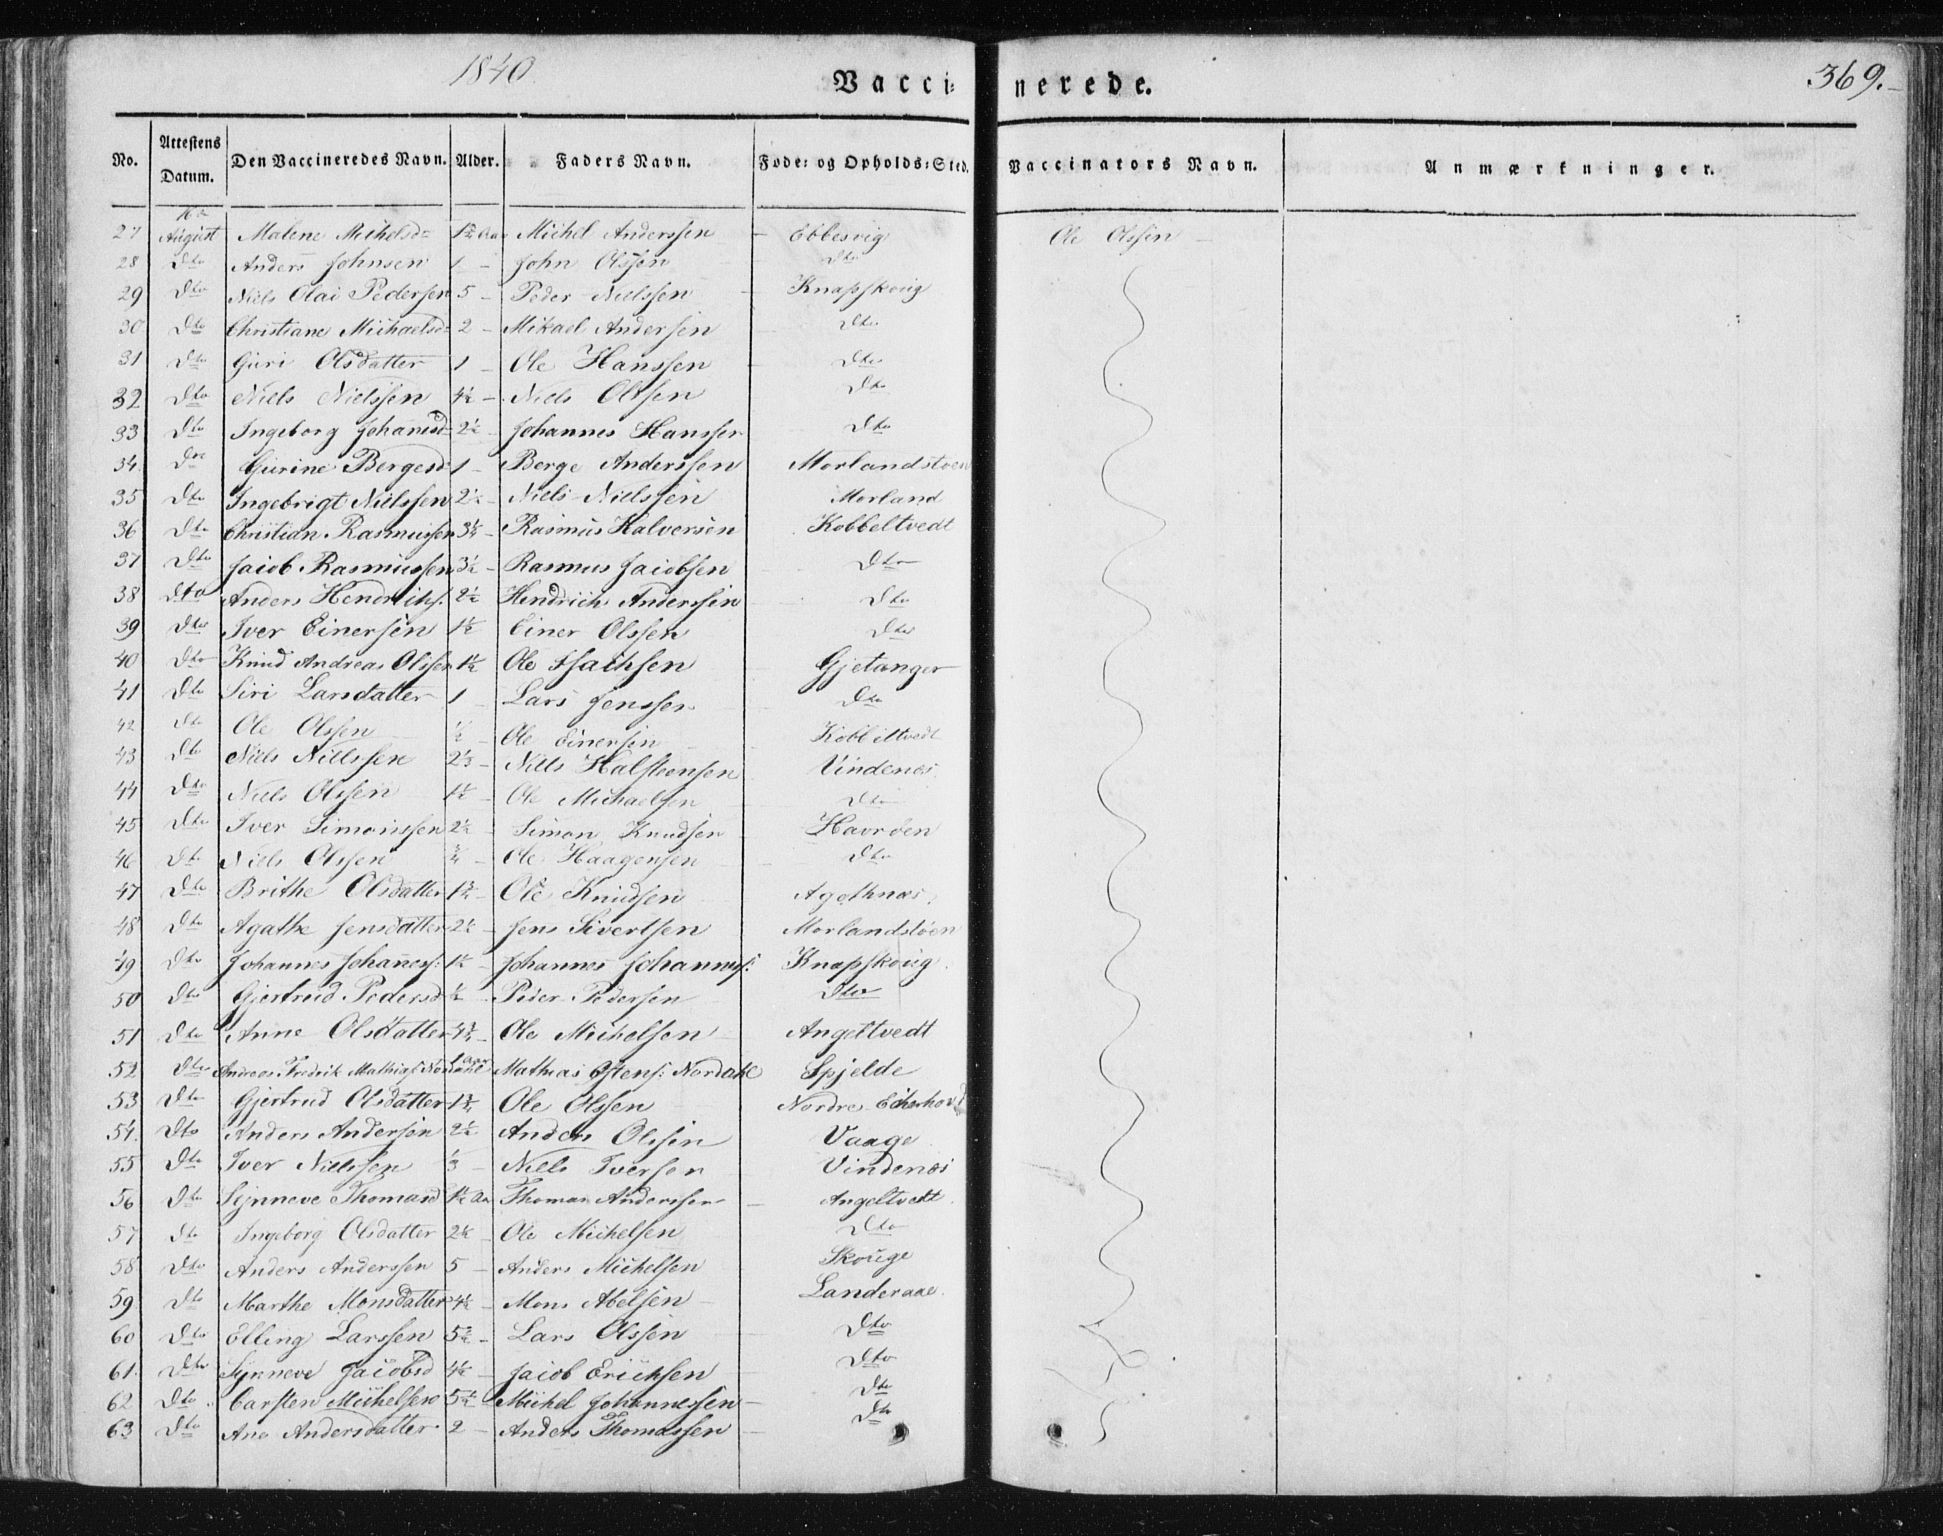 1840.
Vaccinerede.
369.
No. Attestens Datum. Den Vaccineredes Navn. Alder. Faders Navn. Føde- og Opholds-Sted. Vaccinators Navn. Anmærkninger.
27 August Malene Michelsd= Michel Anderssen — Ebbesvig Ole Olssen —
28 Dto Anders Johnsen 1 — John Olssen Dto
29 Dto Niels Olai Pedersen 5 — Peder Nielssen — Knapskoug
30 Dto Christiane Michaelsd= 2 — Mikael Andersen Dto
31 Dto Guri Olsdatter 1 — Ole Hanssen Dto
32 Dto Niels Nielssen — Niels Olssen Dto
33 Dto Ingeborg Johanesd= 2½ — Johannes Hanssen Dto
34 Dto Gurine Bergesd= 1 — Berge Anderssen Morlandstøen
35 Dto Ingebrigt Nielssen 2½ — Niels Nielssen Morland
36 Dto Christian Rasmussen — Rasmus Halversen Kobbeltvedt
37 Dto Jacob Rasmussen 3½ — Rasmus Jacobsen Dto
38 Dto Anders Hendrichs: 2½ Hendrich Anderssen Dto
39 Dto Iver Einersen 1½ Einer Olssen Dto
40 Dto Knud Andreas Olssen 1½ Ole Isachsen Gjetanger
41 Dto Siri Larsdatter 1 — Lars Jenssen Dto
42 Dto Ole Olssen ½ — Ole Einersen Kobbeltvedt
43 Dto Niels Nielssen 2⅓ — Niels Halsteensen Vindenæs
44 Dto Niels Olssen — Ole Michaelsen Dto
45 Dto Iver Simonssen 2½ — Simon Knudsen Havrøen
46 Dto Niels Olssen ¾ — Ole Haagensen Dto
47 Dto Brithe Olsdatter — Ole Knudsen Agothnæs
48 Dto Agathe Jensdatter — Jens Sivertsen Morlandstøen
49 Dto Johannes Johaness: — Johannes Johanness: Knapskoug
50 Dto Gjertrud Pedersd Peder Pedersen Dto
51 Dto Anne Olsdatter — Ole Michelsen Angeltvedt
52 Dto Andreas Fredrik Mathias: Nordahl 1 aar Mathias Østens: Nordahl Spjelde
53 Dto Gjertrud Olsdatter Ole Olssen Nordre
54 Dto Anders Andersen Anders Olssen Vaage
55 Dto Iver Nielssen ⅓ — Niels Iversen Vindenæs
56 Dto Synneve Thomasd Thomas Anderssen — Angeltvedt
57 Dto Ingeborg Olsdatter Ole Michelsen Dto
58 Dto Anders Anderssen 5 — Anders Michelsen Skouge
59 Dto Marthe Monsdatter — Mons Abelsen Landeraae
60 Dto Elling Larssen — Lars Olssen Dto
61 Dto Synneve Jacobsd — Jacob Erichsen Dto
62 Dto Carsten Michelsen Michel Johannessen — Dto
63 Dto Ane Andersdatter 2 — Anders Thomassen — Dto